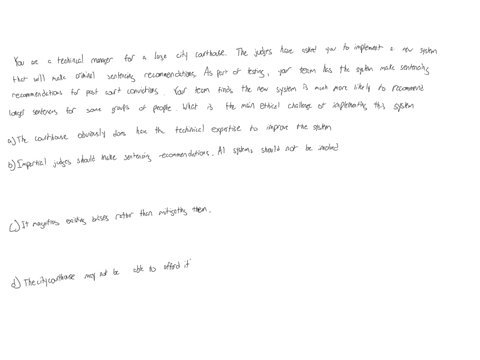 You are a technical manager for a large city courthouse. The judges have asked you to implement a new system
that will make criminal sentencing recommendations. As part of testing, your team has the system make sentencing
recommendations for past court convictions. Your team finds the new system is much more likely to recommend
longer sentences for some groups of people. What is the main ethical challenge of implementing this system
a) The courthouse obviously does have the technical expertise to improve the system
b) Impartial judges should make sentencing recommendations, AI systems should not be involved
c) It magnifies existing biases rather than mitigating them.
d) The city courthouse may not be able to afford it